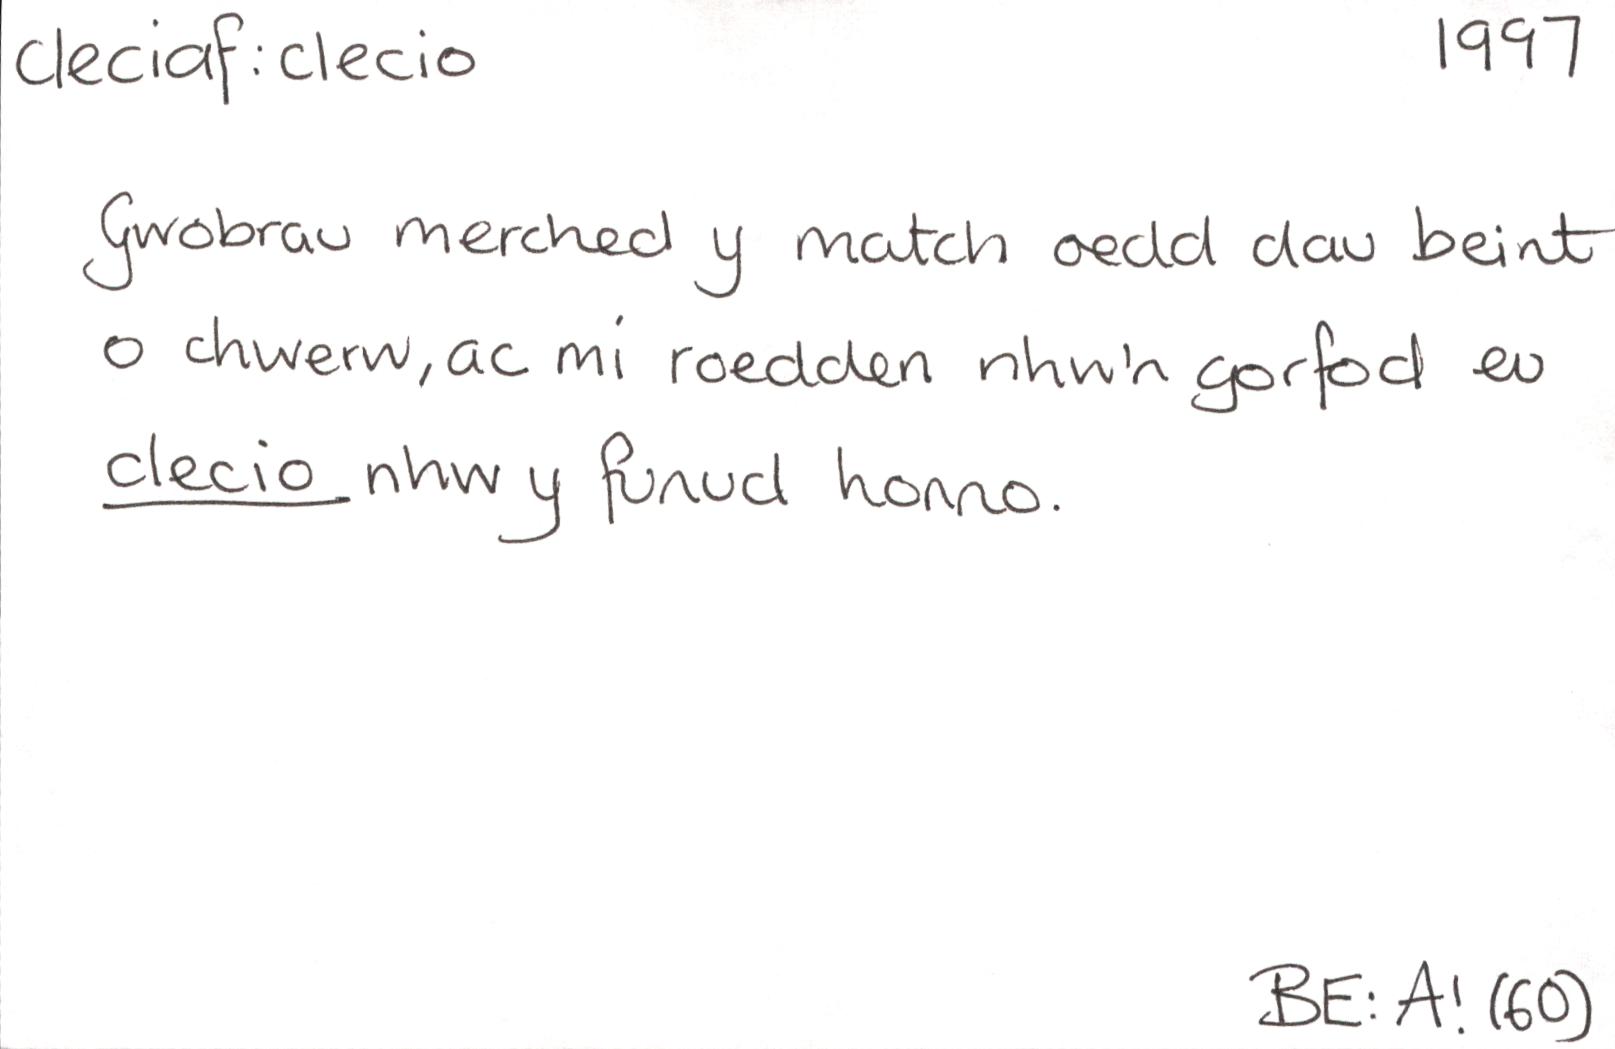 cleciaf: clecio 1997
Gwobrau merched y match oedd dau beint
o chwerw, ac mi roedden nhw'n gorfod eu
clecio nhw y funud honno.
BE: A! (60)